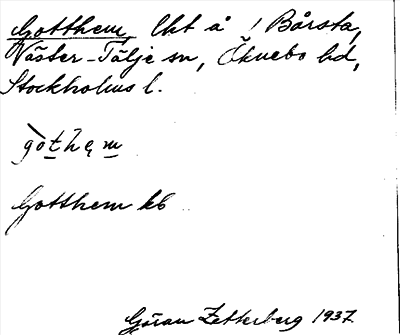 Gotthem, lht å ! Bårsta,
Väster-Tälje sn, Öknebo hd,
Stockholms l.
gòthęm
Gotthem kb
Göran Zetterberg 1937.